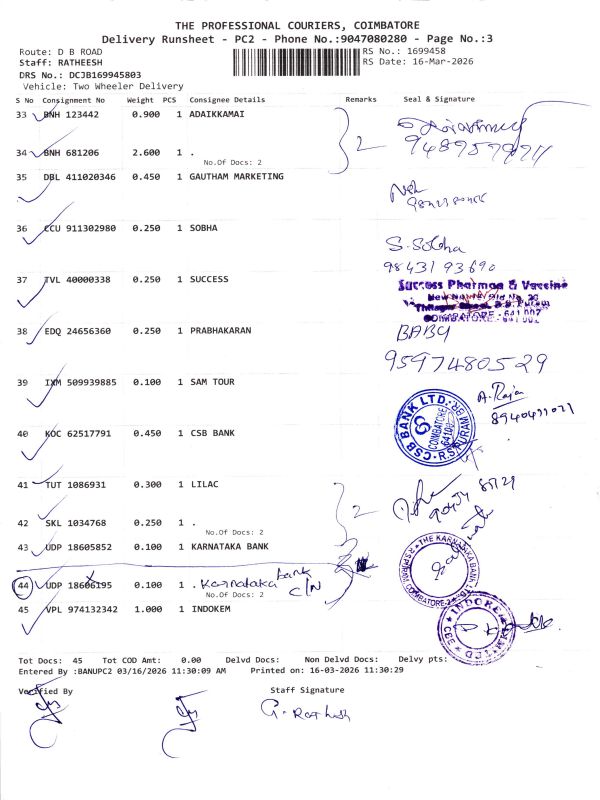 THE PROFESSIONAL COURIERS, COIMBATORE
Delivery Runsheet - PC2 - Phone No.:9047080280 - Page No.:3
Route: D B ROAD RS No.: 1699458
Staff: RATHEESH RS Date: 16-Mar-2026
DRS No.: DCJB169945803
Vehicle: Two Wheeler Delivery
S No Consignment No Weight PCS Consignee Details Remarks Seal & Signature
33 BNH 123442 0.900 1 ADAIKKAMAI
34 BNH 681206 2.600 1 . 2
No.Of Docs: 2
35 DBL 411020346 0.450 1 GAUTHAM MARKETING
36 CCU 911302980 0.250 1 SOBHA
S. Sobha
98431 93690
37 TVL 40000338 0.250 1 SUCCESS
Success Pharma & Vaccine
COIMBATORE - 641 002
38 EDQ 24656360 0.250 1 PRABHAKARAN
BABY
9597480529
39 IXM 509939885 0.100 1 SAM TOUR
A. Raja
40 KOC 62517791 0.450 1 CSB BANK
CSB BANK LTD. R.S.PURAM BR.
COIMBATORE
41 TUT 1086931 0.300 1 LILAC
42 SKL 1034768 0.250 1 . 2
No.Of Docs: 2
43 UDP 18605852 0.100 1 KARNATAKA BANK
THE KARNATAKA BANK LTD.
44 UDP 18606195 0.100 1 . Karnataka bank C/N
No.Of Docs: 2
45 VPL 974132342 1.000 1 INDOKEM
Tot Docs: 45 Tot COD Amt: 0.00 Delvd Docs: Non Delvd Docs: Delvy pts:
Entered By :BANUPC2 03/16/2026 11:30:09 AM Printed on: 16-03-2026 11:30:29
Verified By Staff Signature
G. Rathish